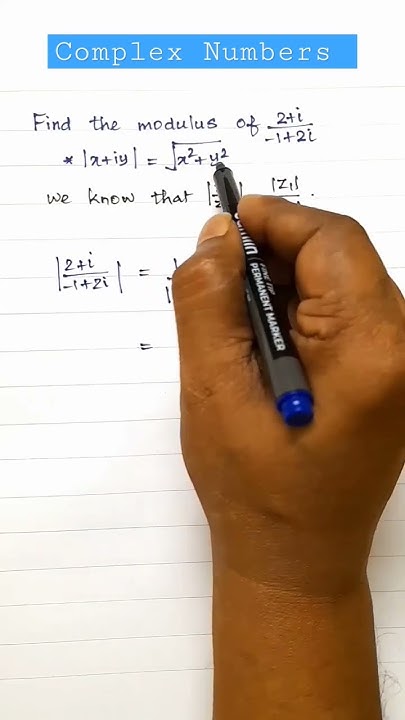 Complex Numbers
Find the modulus of (2+i)/(-1+2i)
* |x+iy| = √(x²+y²)
we know that | | |Z₁|
|(2+i)/(-1+2i)| =
=
FINE TIP
PERMANENT MARKER